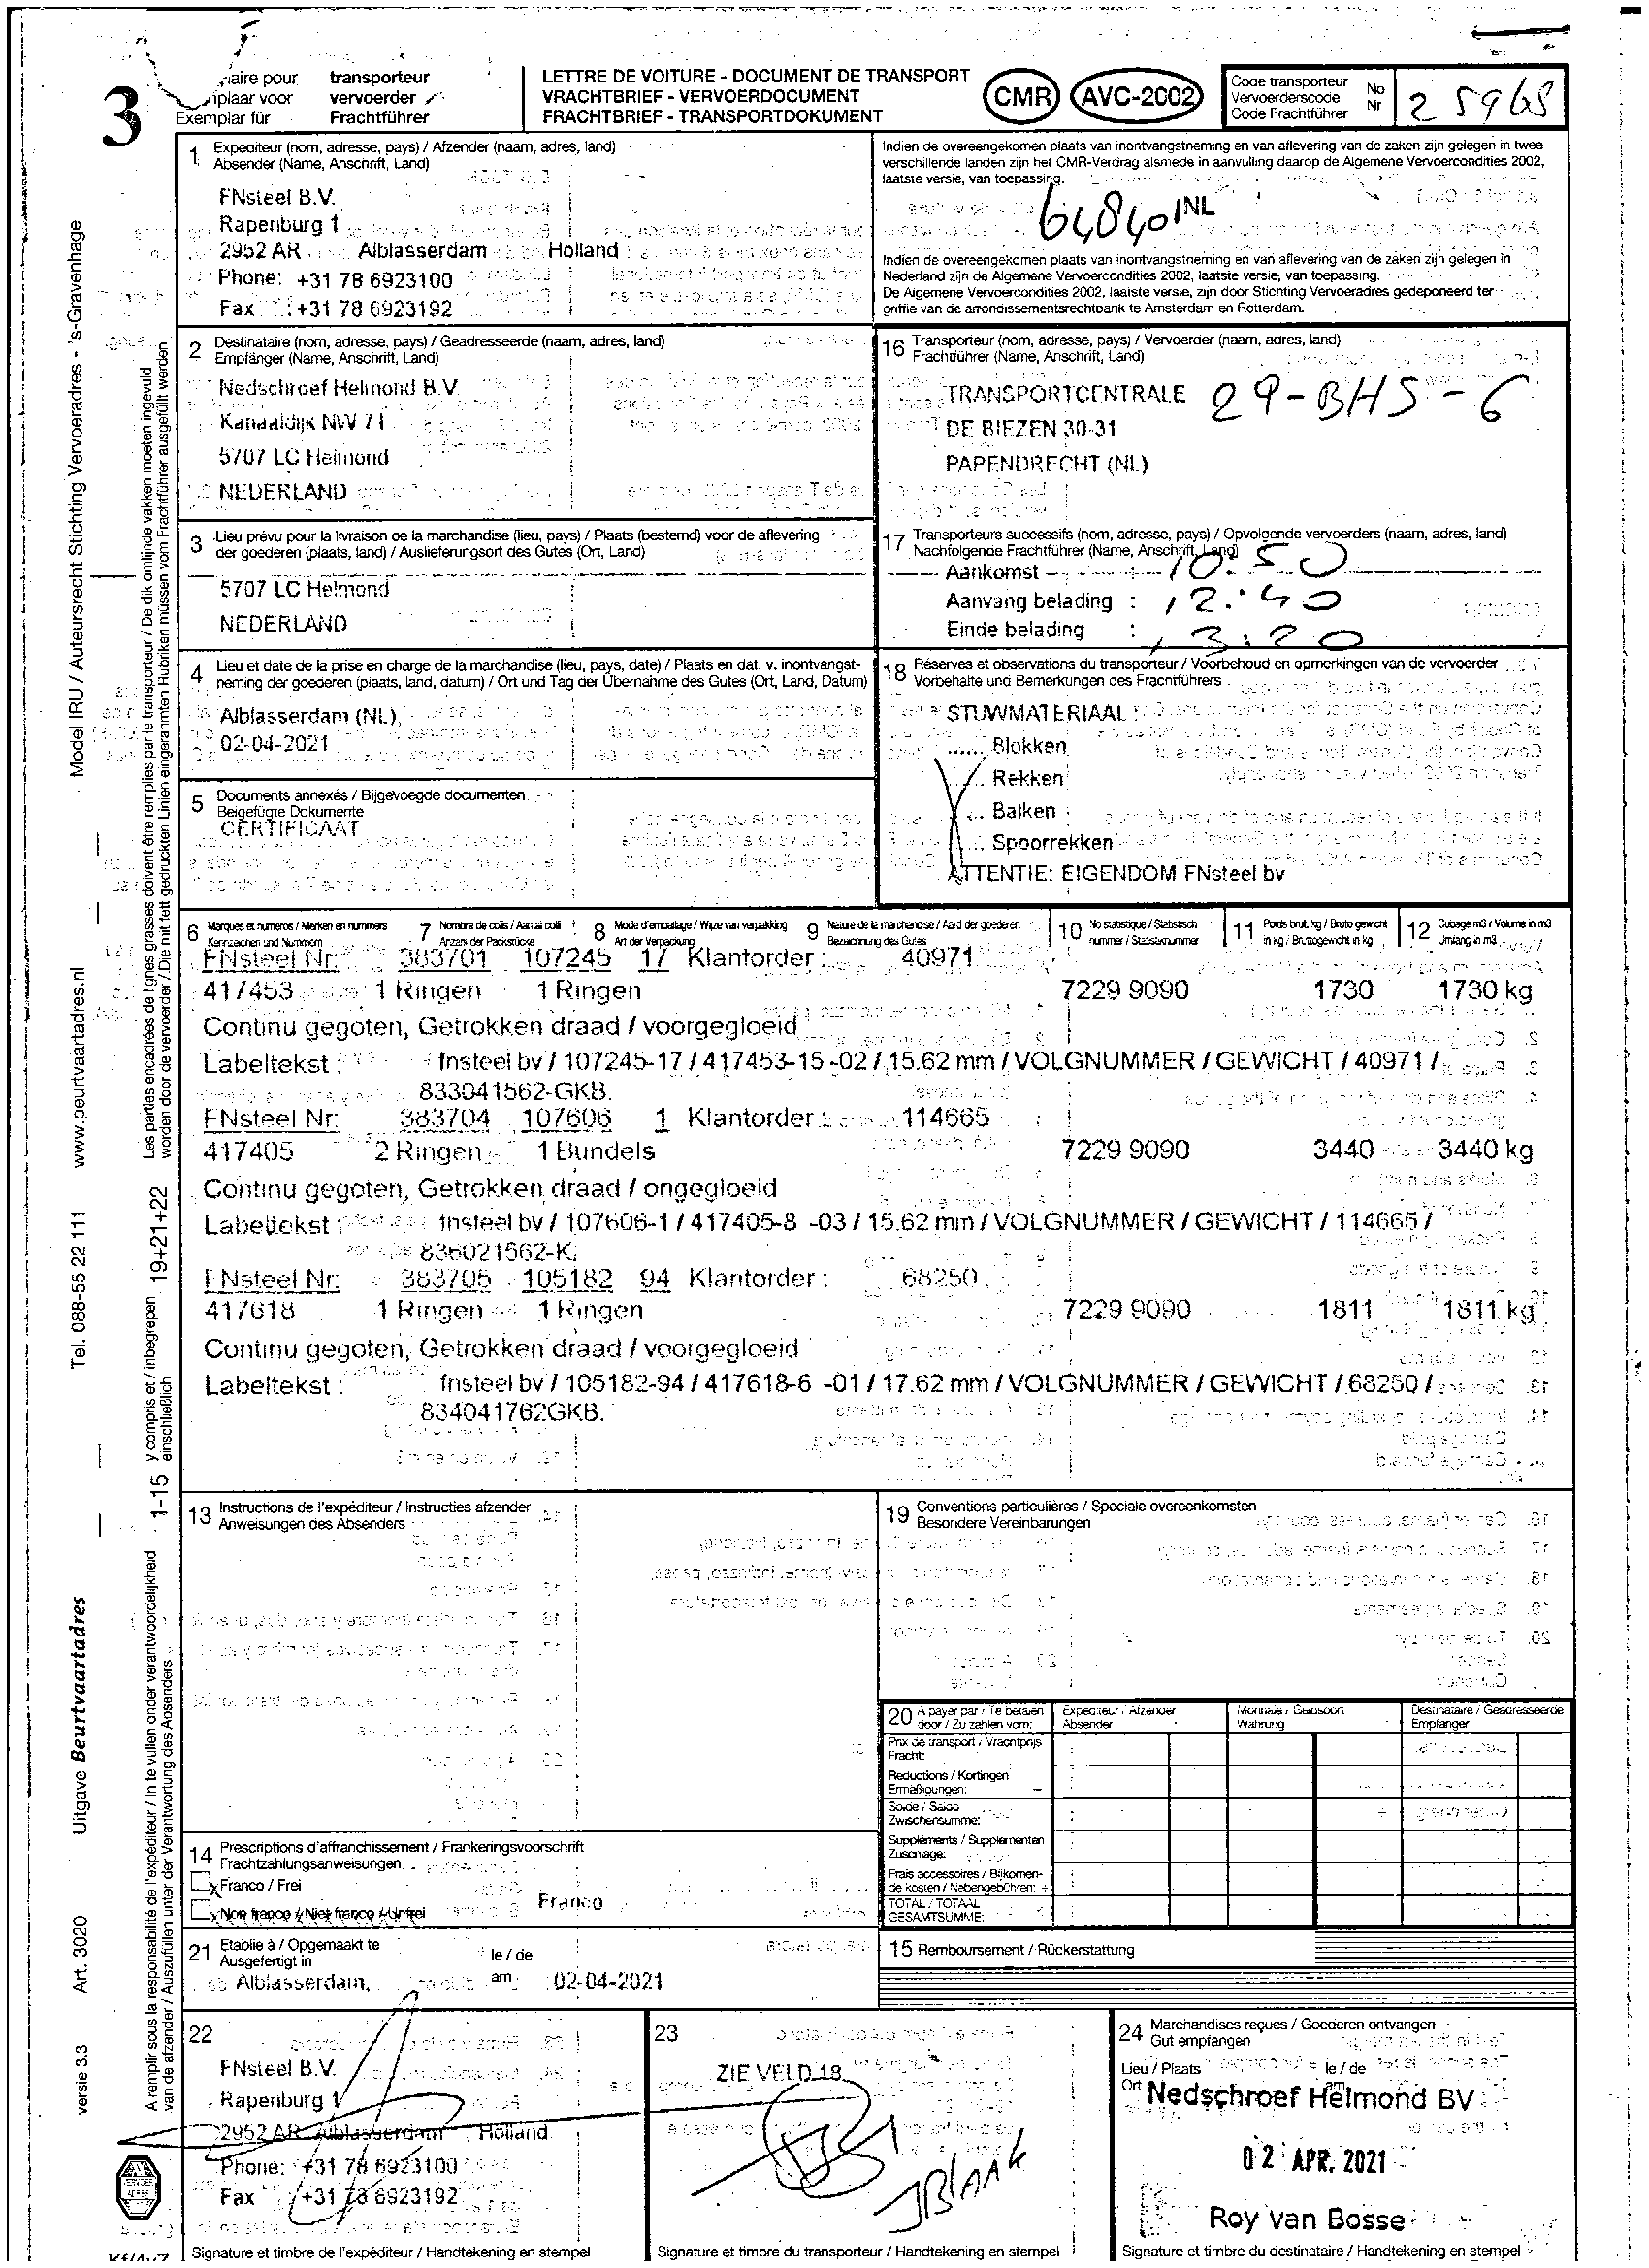 3
transporteur
vervoerder
Exemplar für Frachtführer
LETTRE DE VOITURE - DOCUMENT DE TRANSPORT
VRACHTBRIEF - VERVOERDOCUMENT
FRACHTBRIEF - TRANSPORTDOKUMENT
CMR
AVC-2002
Code transporteur
Vervoerderscode
Code Frachtführer
No
Nr
25968
1 Expéditeur (nom, adresse, pays) / Afzender (naam, adres, land)
Absender (Name, Anschrift, Land)
FNsteel B.V.
Rapenburg 1
2952 AR Alblasserdam Holland
Phone: +31 78 6923100
Fax : +31 78 6923192
Indien de overeengekomen plaats van inontvangstneming en van aflevering van de zaken zijn gelegen in twee
verschillende landen zijn het CMR-Verdrag alsmede in aanvulling daarop de Algemene Vervoercondities 2002,
laatste versie, van toepassing.
64840 NL
Indien de overeengekomen plaats van inontvangstneming en van aflevering van de zaken zijn gelegen in
Nederland zijn de Algemene Vervoercondities 2002, laatste versie, van toepassing.
De Algemene Vervoercondities 2002, laatste versie, zijn door Stichting Vervoeradres gedeponeerd ter
griffie van de arrondissementsrechtbank te Amsterdam en Rotterdam.
2 Destinataire (nom, adresse, pays) / Geadresseerde (naam, adres, land)
Empfänger (Name, Anschrift, Land)
Nedschroef Helmond B.V.
Kanaaldijk NW 71
5707 LC Helmond
NEDERLAND
16 Transporteur (nom, adresse, pays) / Vervoerder (naam, adres, land)
Frachtführer (Name, Anschrift, Land)
TRANSPORTCENTRALE 29-BHS-6
DE BIEZEN 30-31
PAPENDRECHT (NL)
3 Lieu prévu pour la livraison de la marchandise (lieu, pays) / Plaats (bestemd) voor de aflevering
der goederen (plaats, land) / Auslieferungsort des Gutes (Ort, Land)
5707 LC Helmond
NEDERLAND
17 Transporteurs successifs (nom, adresse, pays) / Opvolgende vervoerders (naam, adres, land)
Nachfolgende Frachtführer (Name, Anschrift, Land)
Aankomst 10.50
Aanvang belading : 12:40
Einde belading : 13:20
4 Lieu et date de la prise en charge de la marchandise (lieu, pays, date) / Plaats en dat. v. inontvangst-
neming der goederen (plaats, land, datum) / Ort und Tag der Übernahme des Gutes (Ort, Land, Datum)
Alblasserdam (NL),
02-04-2021
18 Réserves et observations du transporteur / Voorbehoud en opmerkingen van de vervoerder
Vorbehalte und Bemerkungen des Frachtführers
STUWMATERIAAL :
...... Blokken
Rekken
Balken
Spoorrekken
ATTENTIE: EIGENDOM FNsteel bv
5 Documents annexés / Bijgevoegde documenten
Beigefügte Dokumente
CERTIFICAAT
6 Marques et numeros / Merken en nummers
Kennzeichen und Nummern
7 Nombre de colis / Aantal colli
Anzahl der Packstücke
8 Mode d'emballage / Wijze van verpakking
Art der Verpackung
9 Nature de la marchandise / Aard der goederen
Bezeichnung des Gutes
10 No statistique / Statistisch
nummer / Statistiknummer
11 Poids brut, kg / Bruto gewicht
in kg / Bruttogewicht in kg
12 Cubage m3 / Volume in m3
Umfang in m3
FNsteel Nr: 383701 107245 17 Klantorder : 40971
417453 1 Ringen 1 Ringen 7229 9090 1730 1730 kg
Continu gegoten, Getrokken draad / voorgegloeid
Labeltekst : fnsteel bv / 107245-17 / 417453-15 -02 / 15.62 mm / VOLGNUMMER / GEWICHT / 40971 /
833041562-GKB.
FNsteel Nr: 383704 107606 1 Klantorder : 114665
417405 2 Ringen 1 Bundels 7229 9090 3440 3440 kg
Continu gegoten, Getrokken draad / ongegloeid
Labeltekst : fnsteel bv / 107606-1 / 417405-8 -03 / 15.62 mm / VOLGNUMMER / GEWICHT / 114665 /
836021562-K.
FNsteel Nr: 383705 105182 94 Klantorder : 68250
417618 1 Ringen 1 Ringen 7229 9090 1811 1811 kg
Continu gegoten, Getrokken draad / voorgegloeid
Labeltekst : fnsteel bv / 105182-94 / 417618-6 -01 / 17.62 mm / VOLGNUMMER / GEWICHT / 68250 /
834041762GKB.
13 Instructions de l'expéditeur / Instructies afzender
Anweisungen des Absenders
19 Conventions particulières / Speciale overeenkomsten
Besondere Vereinbarungen
20 A payer par / Te betalen
door / Zu zahlen vom:
Expediteur / Afzender
Absender
Monnaie / Geldsoort
Wahrung
Destinataire / Geadresseerde
Empfanger
Prix de transport / Vrachtprijs
Fracht:
Reductions / Kortingen
Ermäßigungen: -
Solde / Saldo
Zwischensumme:
Suppléments / Supplementen
Zuschlage:
Frais accessoires / Bijkomen-
de kosten / Nebengebühren: +
TOTAL / TOTAAL
GESAMTSUMME:
14 Prescriptions d'affranchissement / Frankeringsvoorschrift
Frachtzahlungsanweisungen
x Franco / Frei
x Non franco / Niet franco / Unfrei
Franco
21 Etablie à / Opgemaakt te
Ausgefertigt in
Alblasserdam,
le / de
am
02-04-2021
15 Remboursement / Rückerstattung
22
FNsteel B.V.
Rapenburg 1
2952 AR Alblasserdam Holland
Phone: +31 78 6923100
Fax : +31 78 6923192
Signature et timbre de l'expéditeur / Handtekening en stempel
23
ZIE VELD 18
JBlaak
Signature et timbre du transporteur / Handtekening en stempel
24 Marchandises reçues / Goederen ontvangen
Gut empfangen
Lieu / Plaats
Ort
le / de
am
Nedschroef Helmond BV
02 APR. 2021
Roy van Bosse
Signature et timbre du destinataire / Handtekening en stempel
Model IRU / Auteursrecht Stichting Vervoeradres - 's-Gravenhage
www.beurtvaartadres.nl
Tel. 088-55 22 111
Uitgave Beurtvaartadres
Art. 3020
versie 3.3
Les parties encadrées de lignes grasses doivent être remplies par le transporteur / De dik omlijnde vakken moeten ingevuld
worden door de vervoerder / Die mit fett gedruckten Linien eingerahmten Rubriken müssen vom Frachtführer ausgefüllt werden
19+21+22
y compris et / inbegrepen
einschließlich
1-15
A remplir sous la responsabilité de l'expéditeur / In te vullen onder verantwoordelijkheid
van de afzender / Auszufüllen unter der Verantwortung des Absenders